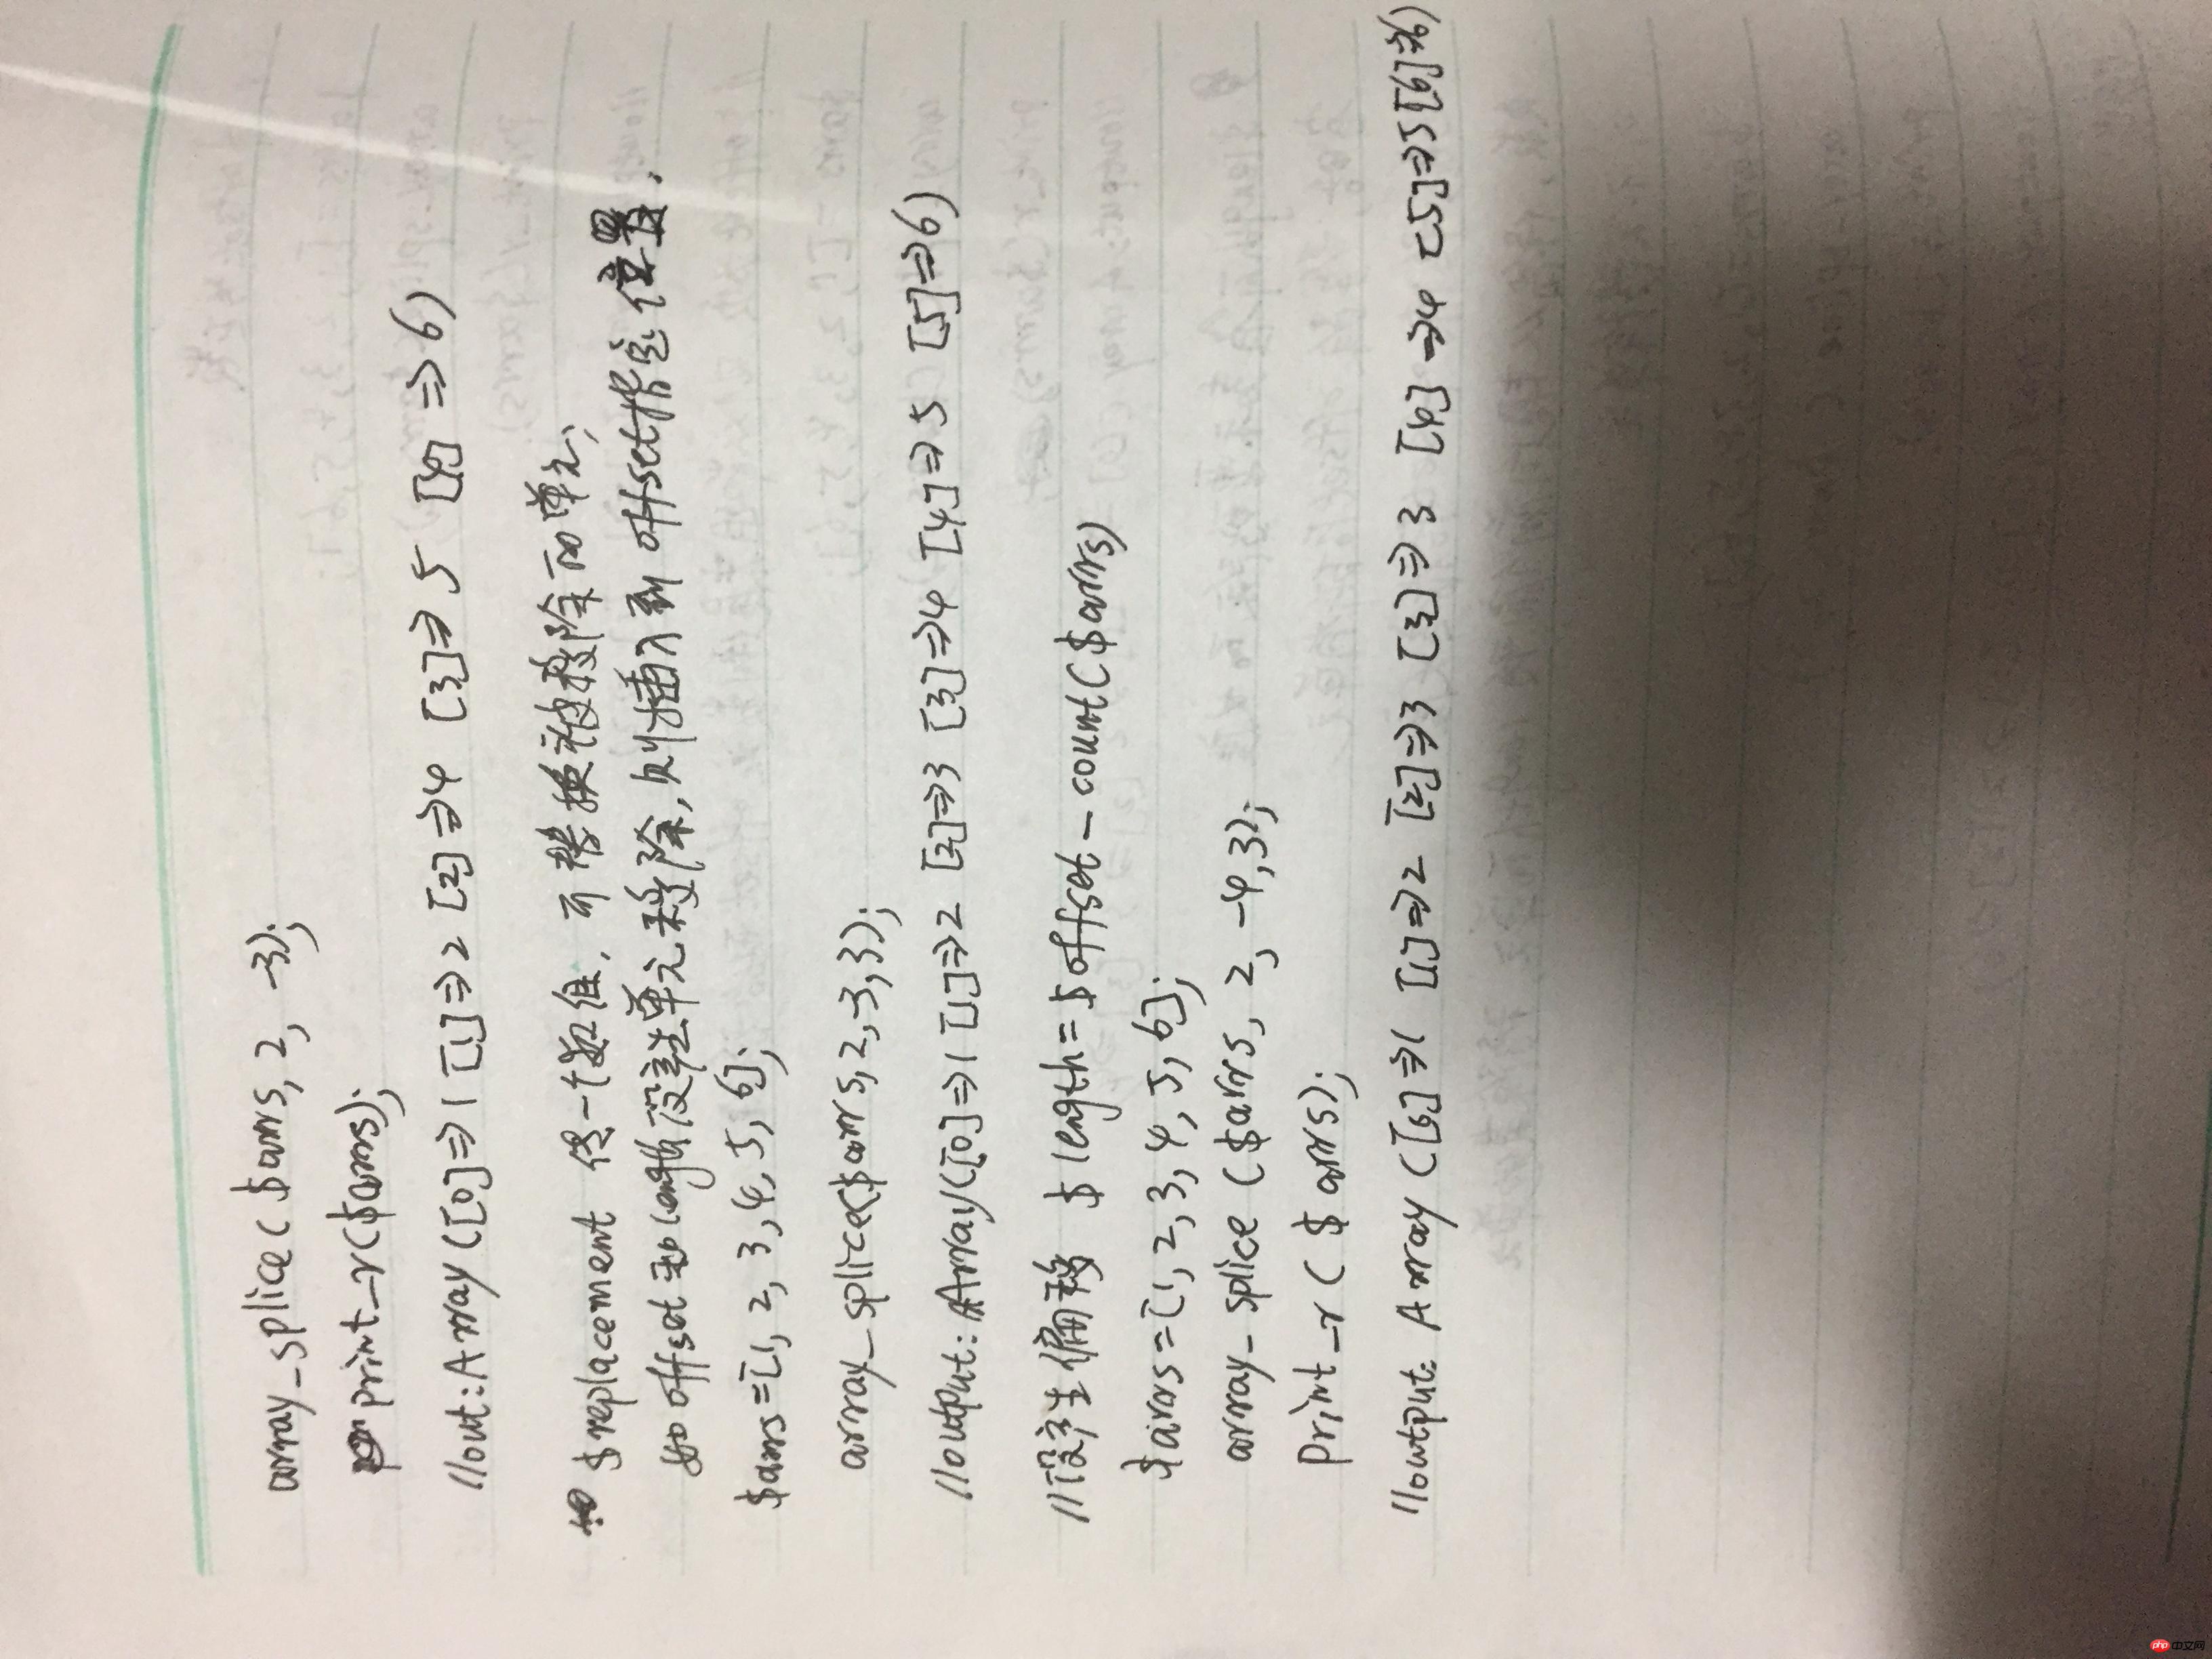 array_splice($arrs, 2, -3);
print_r($arrs);
//out:Array([0]=>1 [1]=>2 [2]=>4 [3]=>5 [4]=>6)
$replacement 传一个数值, 可替换被移除的单元,
如offset和length没产生单元移除,则插入到offset指定位置,
$arrs=[1, 2, 3, 4, 5, 6];
array_splice($arrs,2,-3,3);
//output:Array([0]=>1 [1]=>2 [2]=>3 [3]=>4 [4]=>5 [5]=>6)
//没产生偏移 $length=$offset-count($arrs)
$arrs=[1,2,3,4,5,6];
array-splice($arrs, 2, -4,3);
Print_r($arrs);
//output: Array([0]=>1 [1]=>2 [2]=>3 [3]=>3 [4]=>4 [5]=>5 [6]=>6)
php中文网